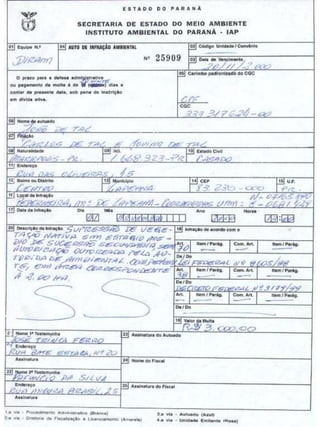 ESTADO DO PARANÁ
SECRETARIA DE ESTADO DO MEIO AMBIENTE
INSTITUTO AMBIENTAL DO PARANÁ - IAP
01 Equipe N.º
DIRAM
04 AUTO DE INFRAÇÃO AMBIENTAL
Nº 25909
02 Código Unidade / Convênio
03 Data de Vencimento
20/11/2.000
O prazo para a defesa administrativa
ou pagamento da multa é de dias a
contar da presente data, sob pena de inscrição
em dívida ativa.
05 Carimbo padronizado do CGC
CPF
339317624-00
06 Nome do autuado
JOÃO DE TAL
07 Filiação
CARLOS DE TAL E DE TAL
08 Naturalidade
09 RG
1.668.323-PR
10 Estado Civil
CASADO
11 Endereço
RUA DAS OLIVEIRAS, 15
12 Bairro ou Distrito
CENTRO
13 Município
14 CEP
83 250-000
15 U.F.
PR.
16 Local da Infração
17 Data da Infração
Dia
Mês
Ano
Horas
20 Descrição da Infração
SUPRESSÃO DE VEGE-
TAÇÃO NATIVA EM ESTÁGIO MÉ-
DIO DE SUCESSÃO SECUNDÁRIA SEM
AUTORIZAÇÃO PELA AU-
TORIDADE AMBIENTAL COMPETENTE
EM ÁREA CORRESPONDENTE
A 2.00 HA.
18 Infração de acordo com o
Art.
Item / Parág.
Com. Art.
Item / Parág.
70
Da / Do
LEI FEDERAL Nº 9605/98
Art.
Item / Parág.
Com. Art.
Item / Parág.
38
Da / Do
DECRETO FEDERAL Nº 3179/99
Art.
Item / Parág.
Com. Art.
Item / Parág.
Da / Do
19 Valor da Multa
R$ 3.000,00
Nome 1ª Testemunha
JOSÉ TRINCA FERRO
Endereço
RUA BATE ESTACA, Nº 20
Assinatura
23 Assinatura do Autuado
24 Nome do Fiscal
22 Nome 2ª Testemunha
DA SILVA
Endereço
RUA BRASIL, 25
Assinatura
25 Assinatura do Fiscal
1.a via - Procedimento Administrativo (Branca)
2.a via - Diretoria de Fiscalização e Licenciamento (Amarela)
3.a via - Autuado (Azul)
4.a via - Unidade Emitente (Rosa)